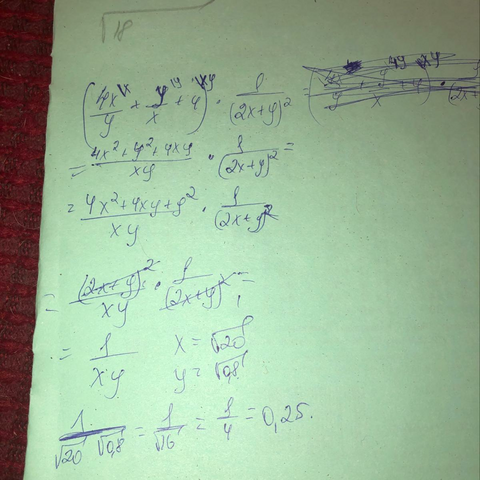 √18
(4x/y + y/x + 4) · 1/(2x+y)²
= (4x²+y²+4xy)/xy · 1/(2x+y)² =
= (4x²+4xy+y²)/xy · 1/(2x+y)²
= (2x+y)²/xy · 1/(2x+y)² =
= 1/xy x = √20
y = √0,8
1/(√20 √0,8) = 1/√16 = 1/4 = 0,25.